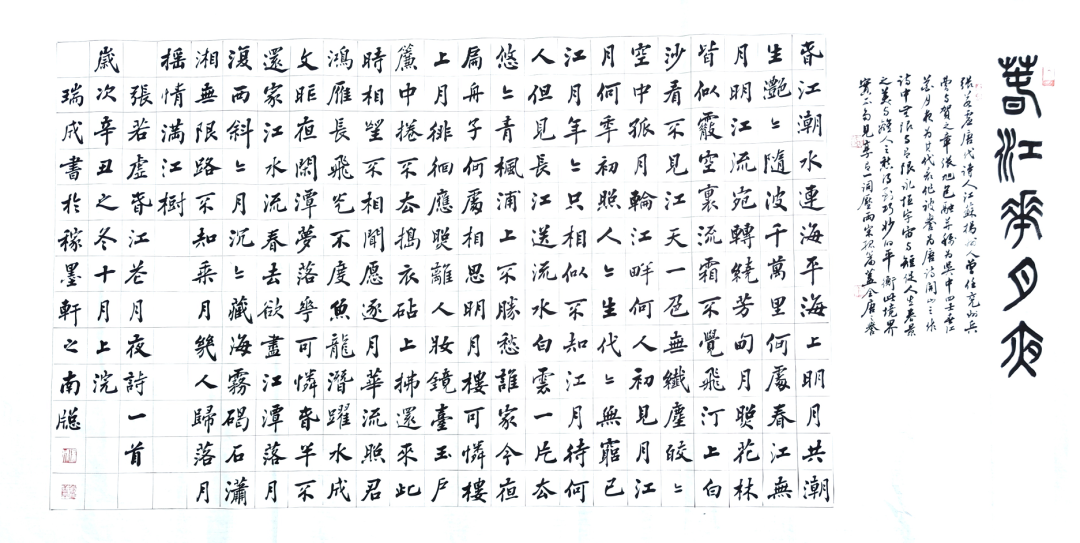 春江華月夜
張若虛唐代詩人江蘇揚州人曾任兗州兵
曹与賀之章張旭包融并稱為吳中四士春江
花月夜為其代表作被譽為唐詩開山之作
詩中無限与有限永恆宇宙与短促人生美景
之美与離人之愁得到巧妙的平衡此境界
實不多見享有詞壓兩宋孤篇蓋全唐之譽
春江潮水連海平海上明月共潮
生灩〻隨波千萬里何處春江無
月明江流宛轉繞芳甸月照花林
皆似霰空裏流霜不覺飛汀上白
沙看不見江天一色無纖塵皎〻
空中孤月輪江畔何人初見月江
月何年初照人〻生代〻無窮已
江月年〻只相似不知江月待何
人但見長江送流水白雲一片去
悠〻青楓浦上不勝愁誰家今夜
扁舟子何處相思明月樓可憐樓
上月徘徊應照離人妝鏡臺玉戶
簾中捲不去搗衣砧上拂還來此
時相望不相聞愿逐月華流照君
鴻雁長飛光不度魚龍潛躍水成
文昨夜閑潭夢落華可憐春半不
還家江水流春去欲盡江潭落月
復西斜〻月沉〻藏海霧碣石瀟
湘無限路不知乘月幾人歸落月
搖情滿江樹
張若虛春江花月夜詩一首
歲次辛丑之冬十月上浣
瑞成書於稼墨軒之南窗